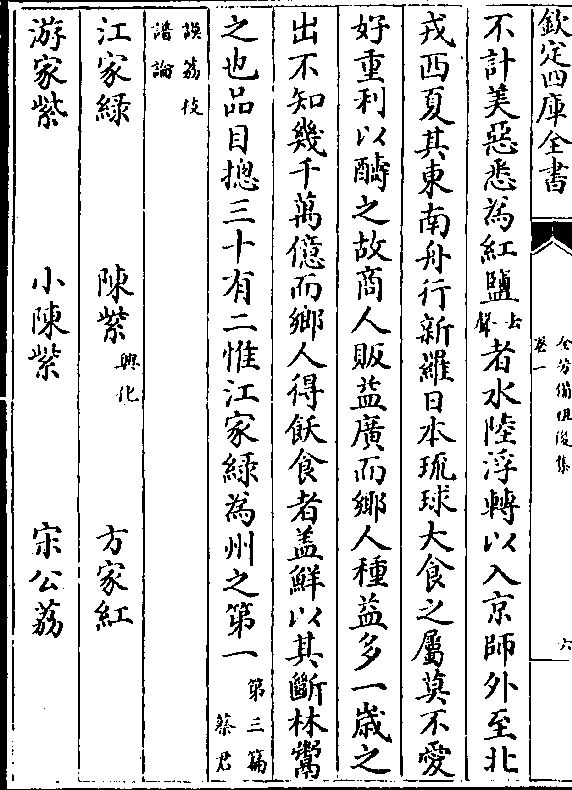 欽定四庫全書
全芳備祖後集
卷一
六
不計美惡悉為紅鹽上錄者水陸浮轉以入京師外至北
戎西夏其東南舟行新羅日本琉球大食之屬莫不愛
好重利以酧之故商人販益廣而鄉人種益多一歳之
出不知幾千萬億而鄉人得飫食者盖鮮以其斷林鬻
之也品目摠三十有二惟江家綠為州之第一第三篇蔡君
謨荔枝譜論
江家綠 陳紫興化 方家紅
游家紫 小陳紫 宋公荔